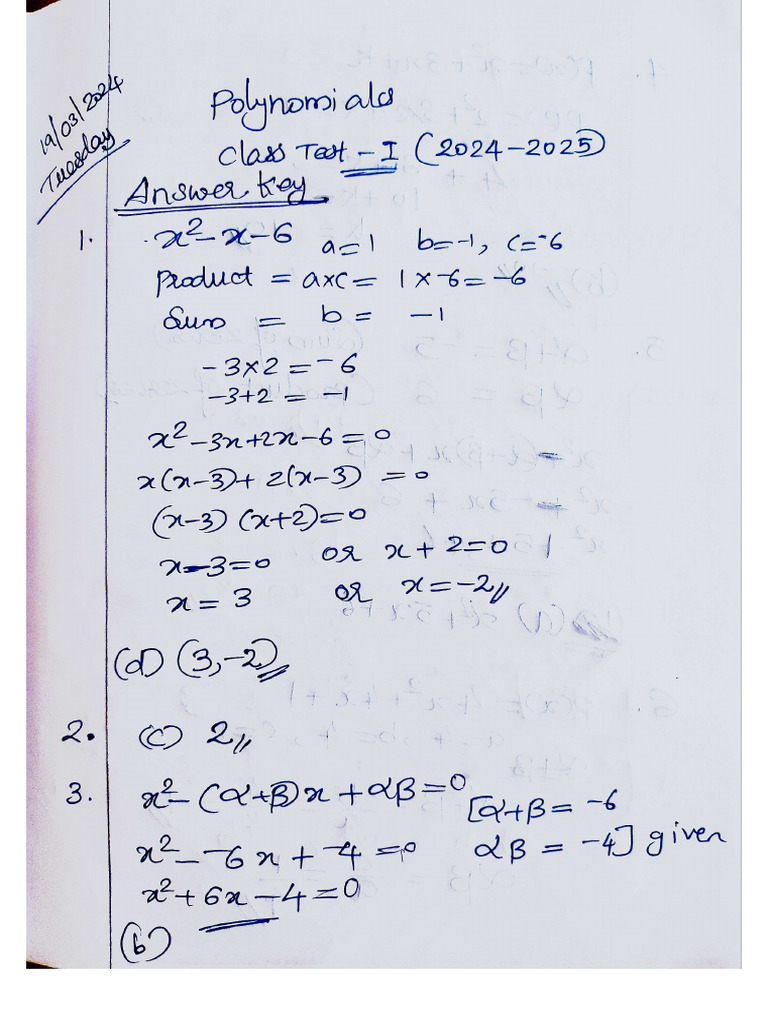 19/03/2024
Tuesday
Polynomials
Class Test - I (2024-2025)
Answer Key
1. x² - x - 6 a=1 b=-1, c=-6
Product = a×c = 1 × -6 = -6
Sum = b = -1
-3×2 = -6
-3+2 = -1
x² - 3x + 2x - 6 = 0
x(x-3) + 2(x-3) = 0
(x-3) (x+2) = 0
x - 3 = 0 or x + 2 = 0
x = 3 or x = -2
(d) (3, -2)
2. (c) 2
3. x² - (α+β)x + αβ = 0
[α+β = -6
x² - -6x + -4 = 0 αβ = -4] given
x² + 6x - 4 = 0
(b)